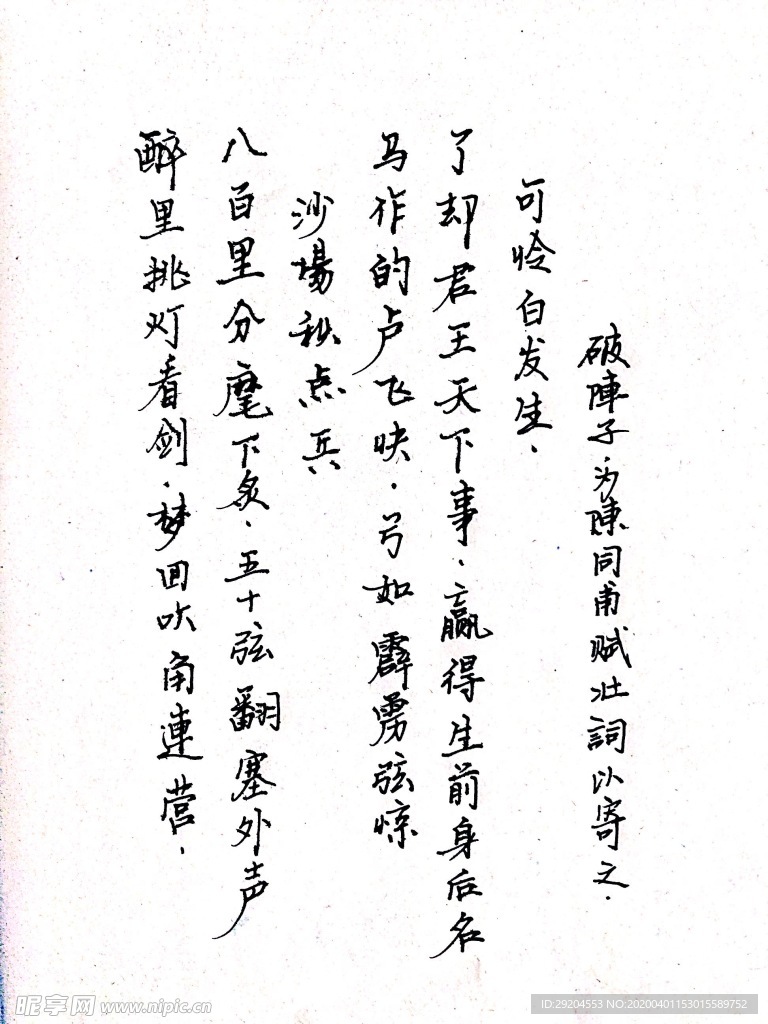 醉里挑灯看剑．梦回吹角連营．
八百里分麾下炙．五十弦翻塞外声
沙場秋点兵
马作的卢飞快．弓如霹雳弦惊
了却君王天下事．赢得生前身后名
可怜白发生．
破陣子·为陳同甫赋壮詞以寄之．
昵享网 www.nipic.cn
ID:29204553 NO:20200401153015589752